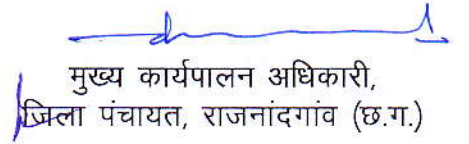 मुख्य कार्यपालन अधिकारी,
जिला पंचायत, राजनांदगांव (छ.ग.)